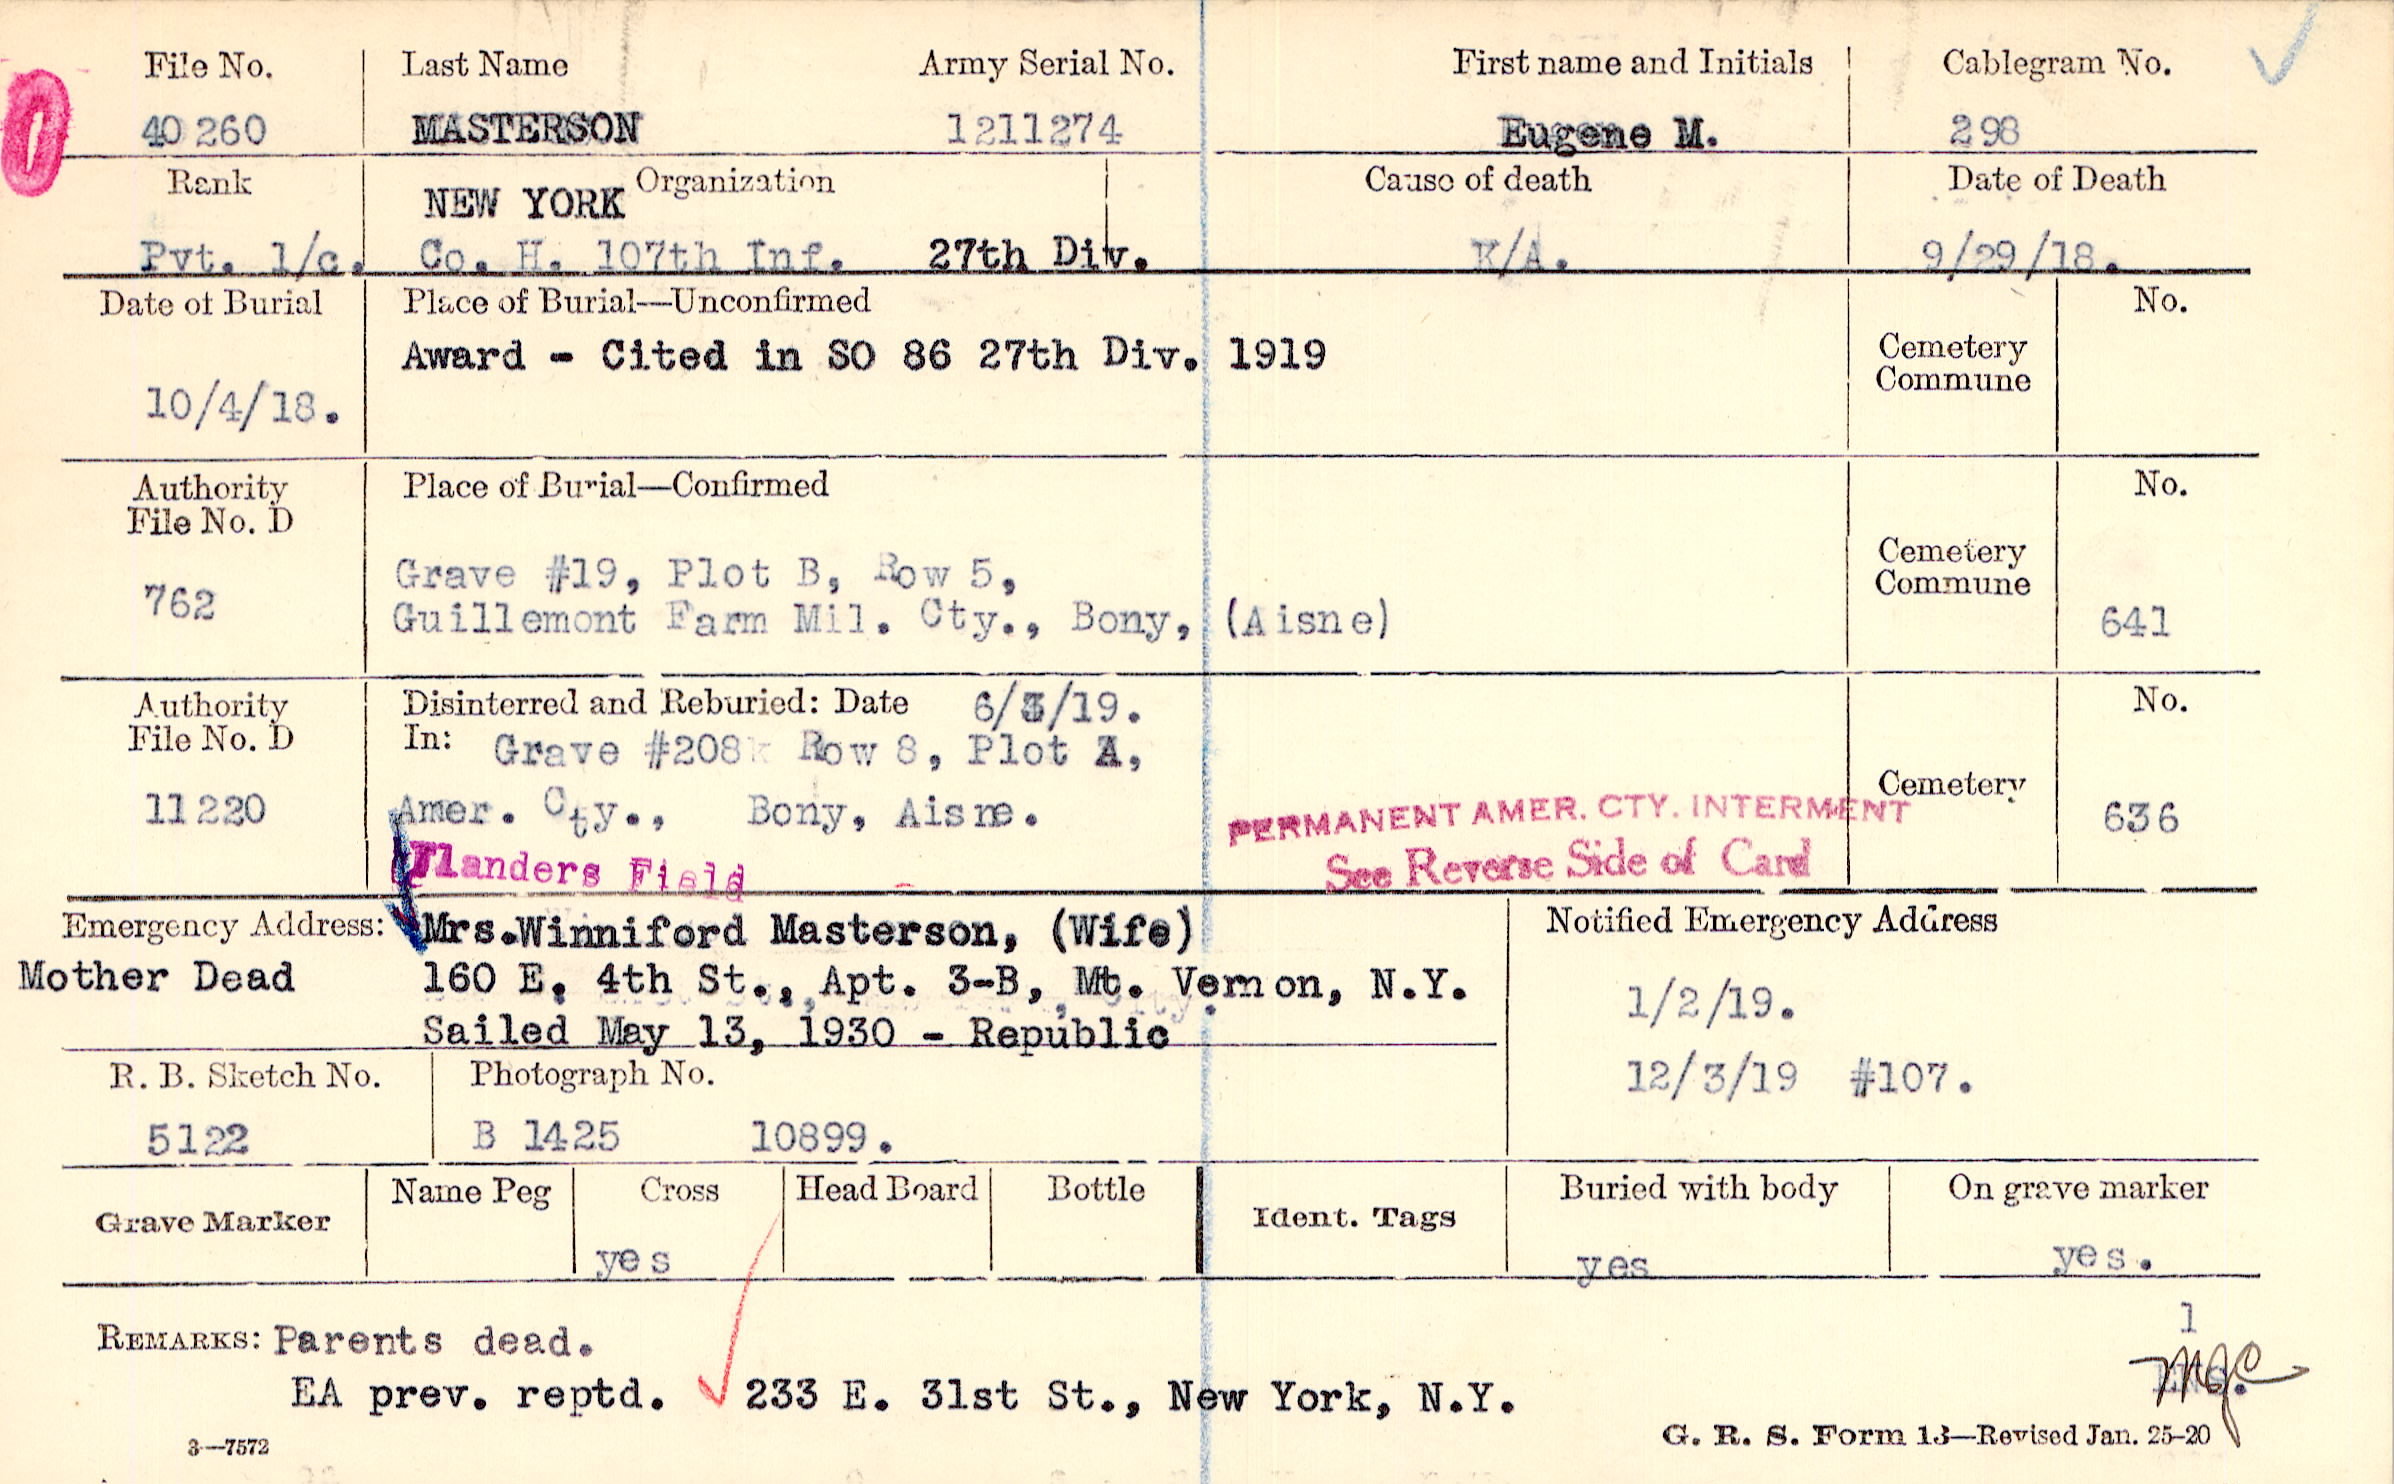 File No. Last Name Army Serial No. First name and Initials Cablegram No.
40260 MASTERSON 1211274 Eugene M. 298
Rank Organization Cause of death Date of Death
NEW YORK
Pvt. 1/c. Co. H. 107th Inf. 27th Div. K/A. 9/29/18.
Date of Burial Place of Burial—Unconfirmed No.
Award - Cited in SO 86 27th Div. 1919 Cemetery
Commune
10/4/18.
Authority Place of Burial—Confirmed No.
File No. D
Grave #19, Plot B, Row 5, Cemetery
Commune
762 Guillemont Farm Mil. Cty., Bony, (Aisne) 641
Authority Disinterred and Reburied: Date 6/3/19. No.
File No. D In: Grave #208 Row 8, Plot A,
Cemetery
11220 Amer. Cty., Bony, Aisne. PERMANENT AMER. CTY. INTERMENT 636
Flanders Field See Reverse Side of Card
Emergency Address: Mrs.Winniford Masterson, (Wife) Notified Emergency Address
Mother Dead 160 E. 4th St., Apt. 3-B, Mt. Vernon, N.Y. 1/2/19.
Sailed May 13, 1930 - Republic
R. B. Sketch No. Photograph No. 12/3/19 #107.
5122 B 1425 10899.
Grave Marker Name Peg Cross Head Board Bottle Ident. Tags Buried with body On grave marker
yes yes yes.
1
REMARKS: Parents dead.
EA prev. reptd. 233 E. 31st St., New York, N.Y.
3—7572 G. R. S. Form 13—Revised Jan. 25-20